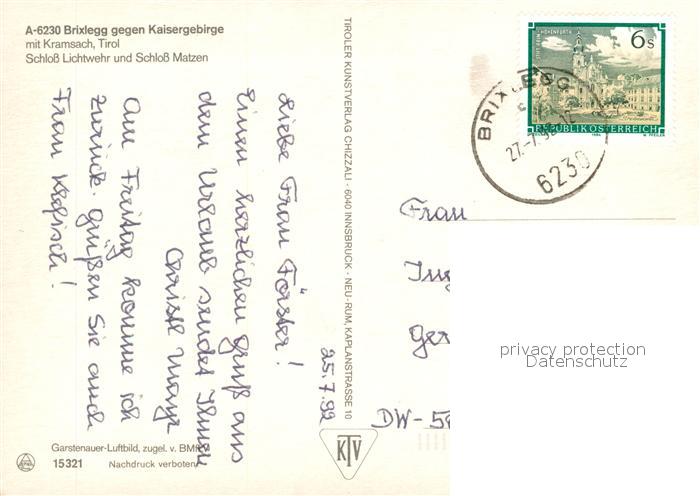 A-6230 Brixlegg gegen Kaisergebirge
mit Kramsach, Tirol
Schloß Lichtwehr und Schloß Matzen
Liebe Frau Förster!
Einen herzlichen Gruß aus
dem Urlaub sendet Ihnen
Christl Mayr
Am Freitag komme ich
zurück. grüßen Sie auch
Frau
25.7.92
Garstenauer-Luftbild, zugel. v. BMfLV
15321 Nachdruck verboten
TIROLER KUNSTVERLAG CHIZZALI · 6040 INNSBRUCK · NEU-RUM, KAPLANSTRASSE 10
KTV
6 s
STIFT REIN-HOHENFURTH
REPUBLIK ÖSTERREICH
BRIXLEGG
27.-7.92
6230
Frau
Ing
Ger
DW-
privacy protection
Datenschutz